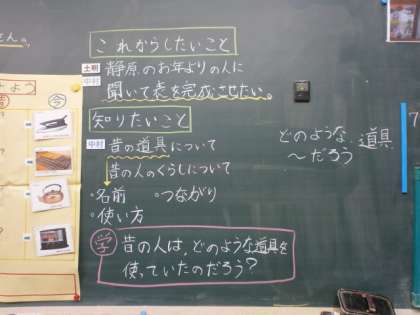 さん。
これからしたいこと
土朝
中村
静原のお年よりの人に
聞いて表を完成させたい。
知りたいこと
中村
昔の道具について
昔の人のくらしについて
・名前 ・つながり
・使い方
学 昔の人は、どのような道具を
使っていたのだろう?
どのような 道具
～だろう
よう
昔 今
7